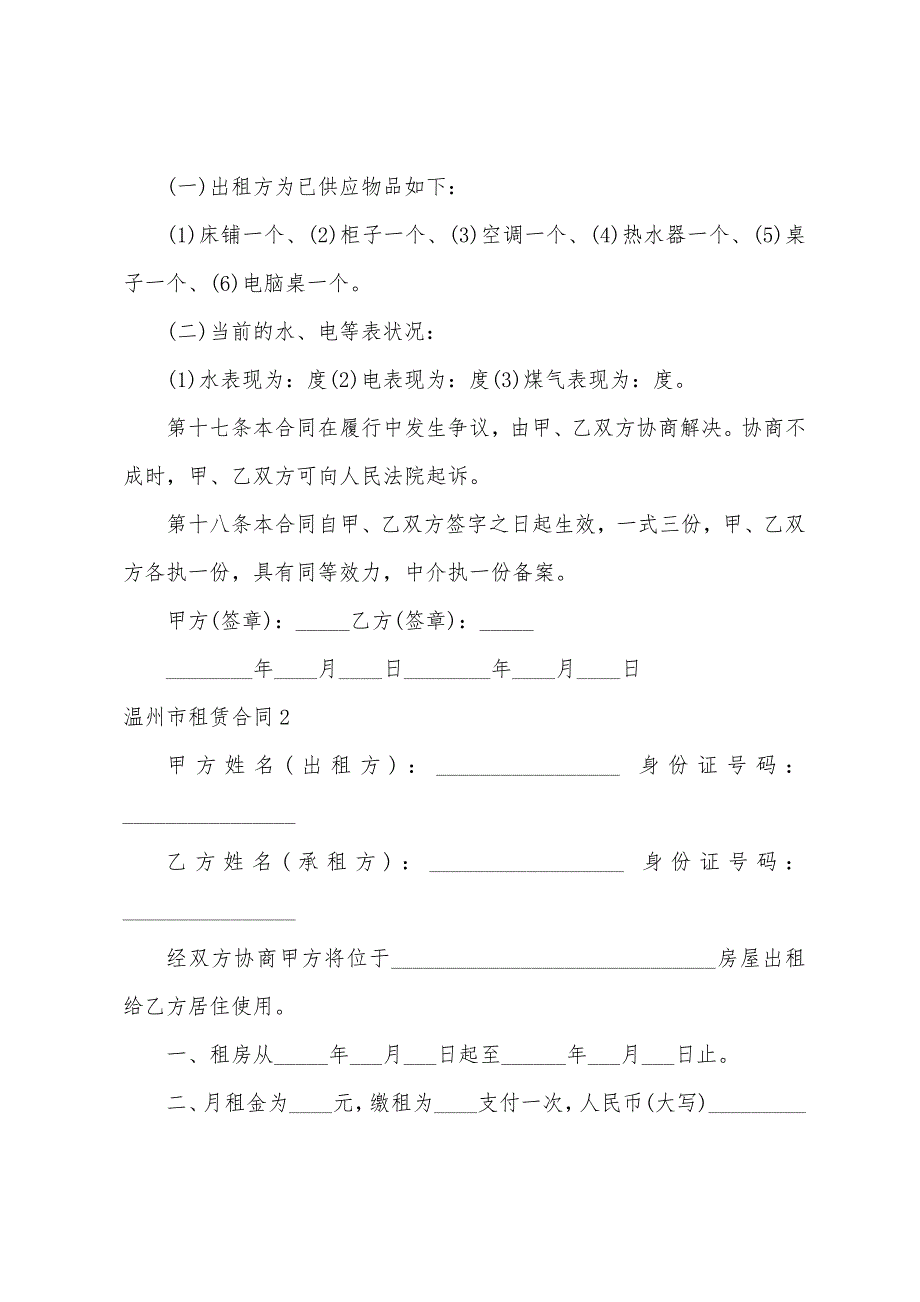 (一)出租方为已供应物品如下：
(1)床铺一个、(2)柜子一个、(3)空调一个、(4)热水器一个、(5)桌
子一个、(6)电脑桌一个。
(二)当前的水、电等表状况：
(1)水表现为：度(2)电表现为：度(3)煤气表现为：度。
第十七条本合同在履行中发生争议，由甲、乙双方协商解决。协商不
成时，甲、乙双方可向人民法院起诉。
第十八条本合同自甲、乙双方签字之日起生效，一式三份，甲、乙双
方各执一份，具有同等效力，中介执一份备案。
甲方(签章)：_____乙方(签章)：_____
________年____月____日________年____月____日
温州市租赁合同2
甲方姓名(出租方)：_________________ 身份证号码：
________________
乙方姓名(承租方)：__________________ 身份证号码：
________________
经双方协商甲方将位于______________________________房屋出租
给乙方居住使用。
一、租房从_____年___月___日起至______年___月___日止。
二、月租金为____元，缴租为____支付一次，人民币(大写)_________